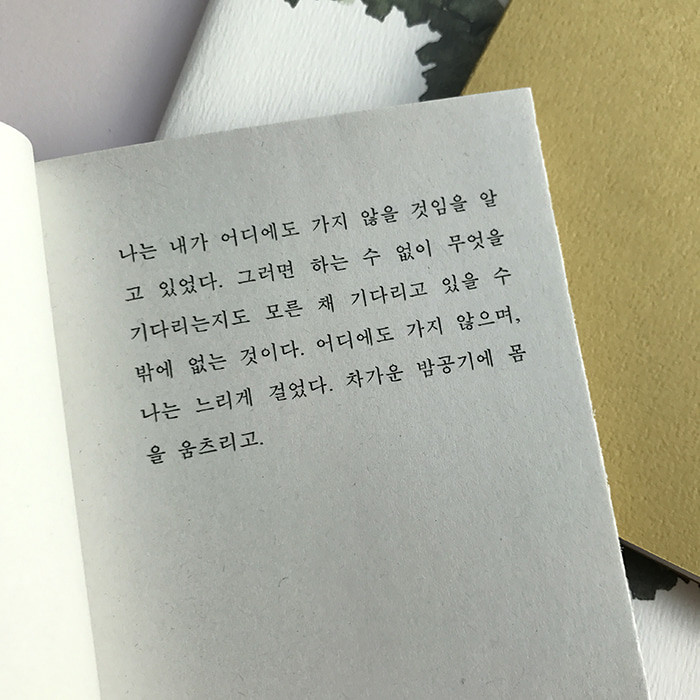 나는 내가 어디에도 가지 않을 것임을 알
고 있었다. 그러면 하는 수 없이 무엇을
기다리는지도 모른 채 기다리고 있을 수
밖에 없는 것이다. 어디에도 가지 않으며,
나는 느리게 걸었다. 차가운 밤공기에 몸
을 움츠리고.